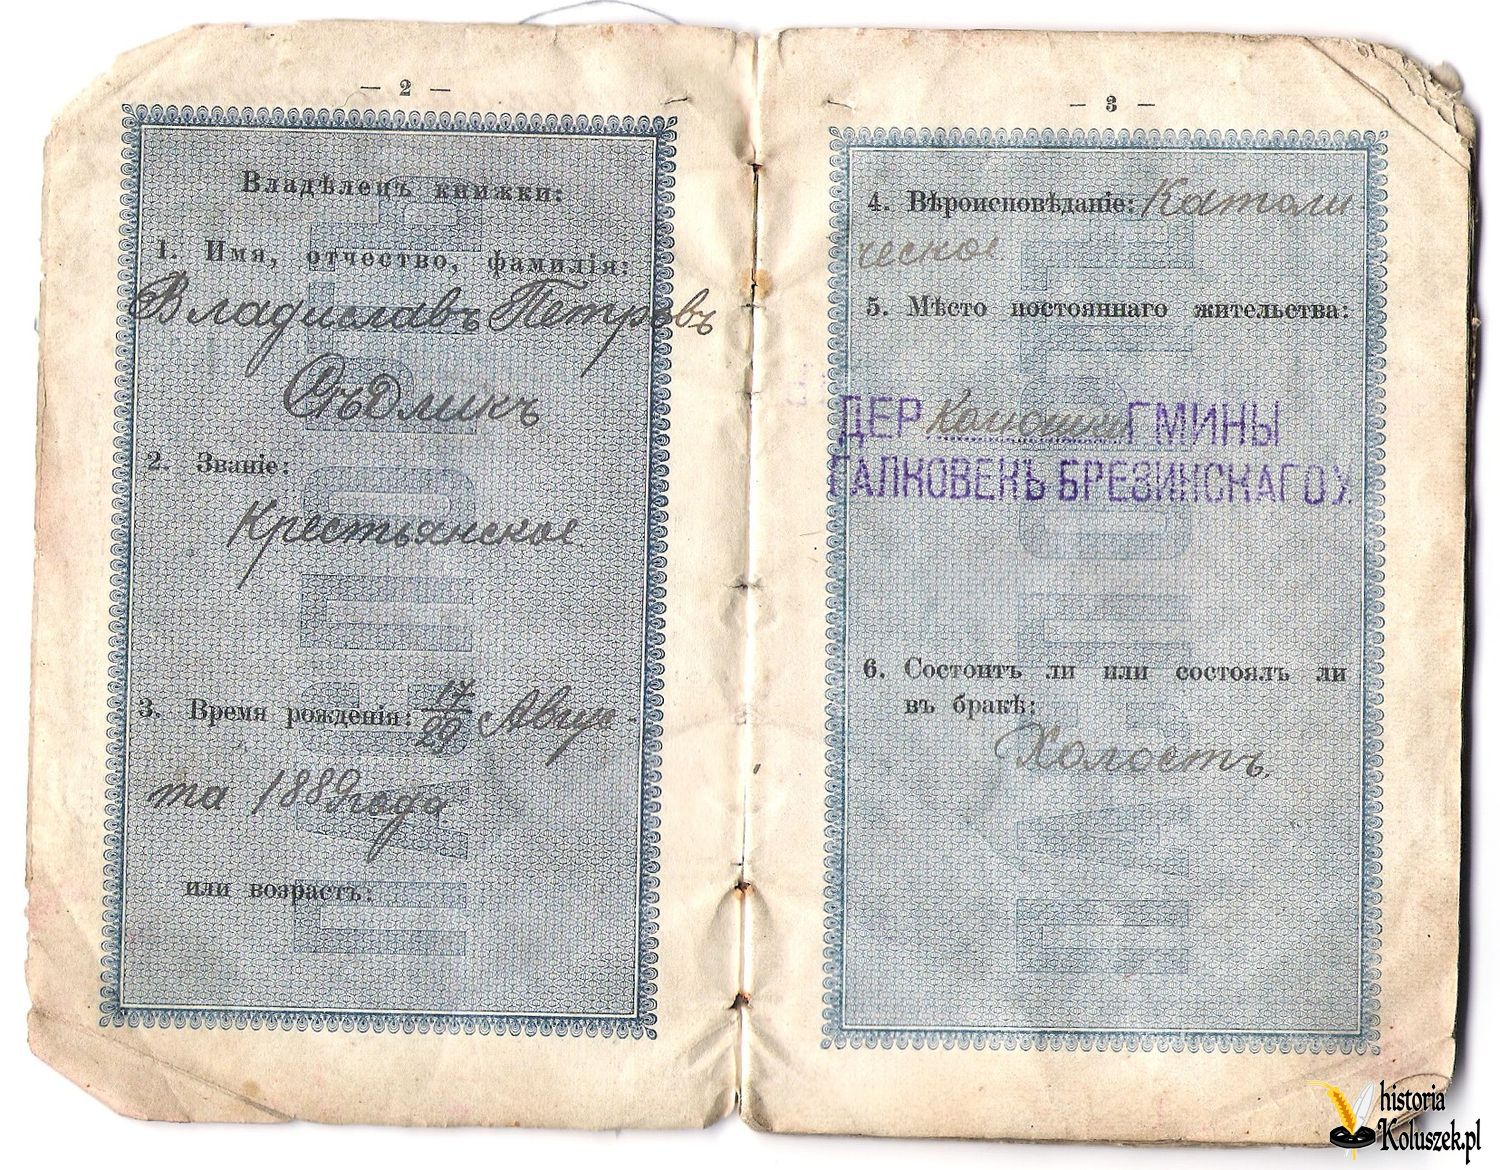 — 2 —
Владѣлецъ книжки:
1. Имя, отчество, фамилія:
Владиславъ Петровъ
Сѣдликъ
2. Званіе:
Крестьянское
3. Время рожденія: 17/29 Авгус-
та 1889 года
или возрастъ:
— 3 —
4. Вѣроисповѣданіе: Католи
ческое
5. Мѣсто постояннаго жительства:
ДЕР. Колюшки ГМИНЫ
ГАЛКОВЕКЪ БРЕЗИНСКАГО У.
6. Состоитъ ли или состоялъ ли
въ бракѣ:
Холостъ
historia
Koluszek.pl